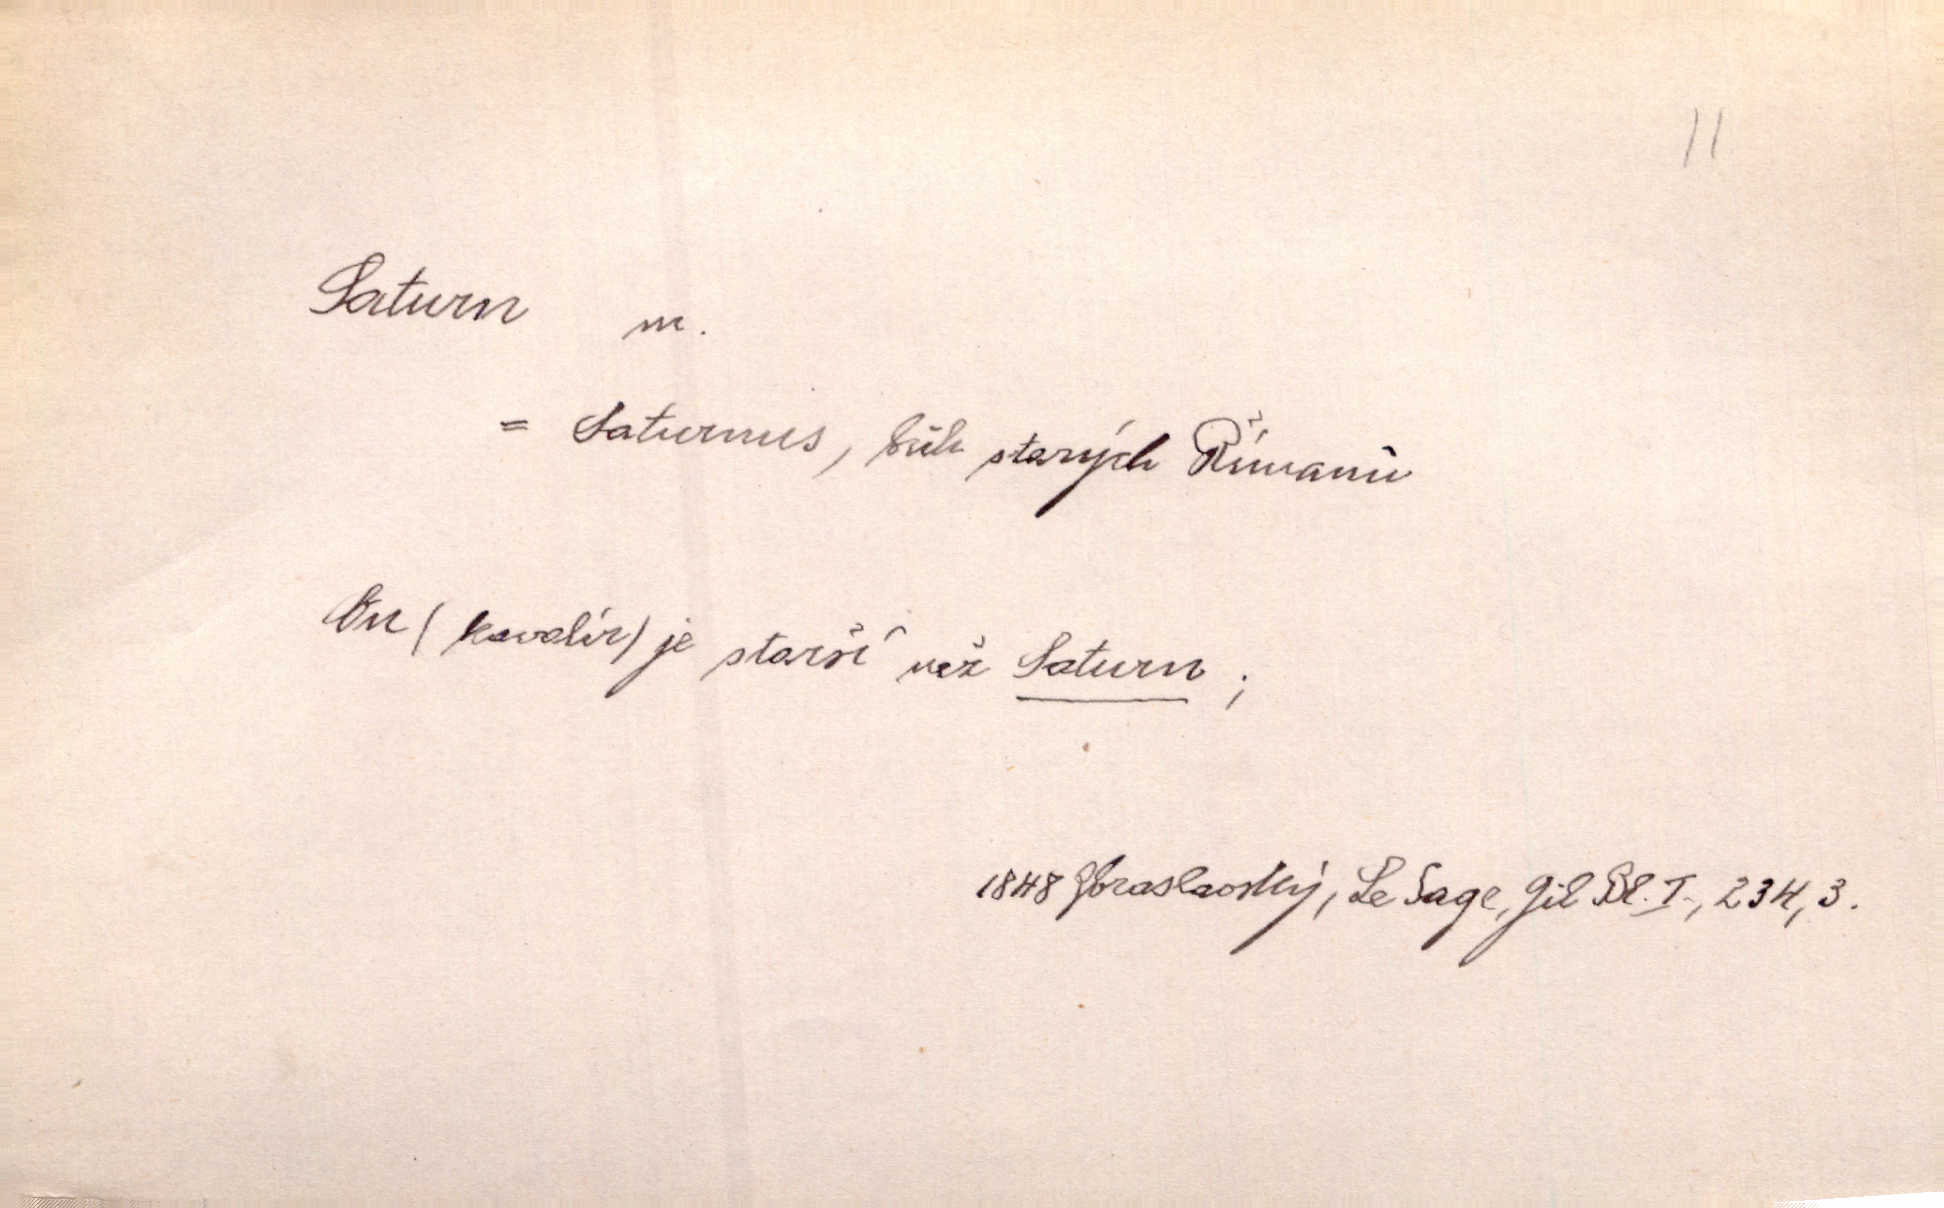 11
Saturn m.
= Saturnus, bůh starých Římanů
On (kavalír) je starší než Saturn;
1848 Zbraslavský, Le Sage, Gil Bl. I., 234, 3.